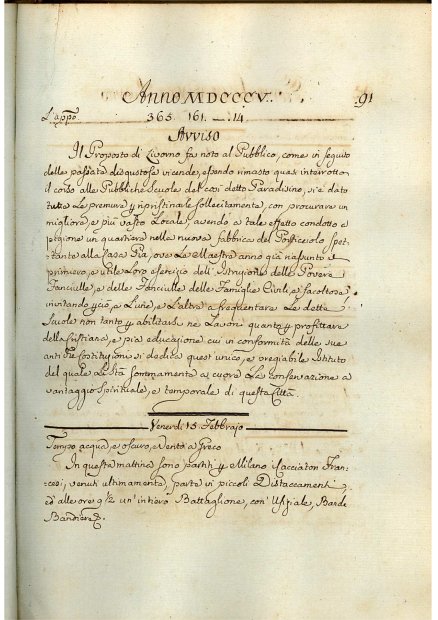 Anno MDCCCV. 91
L'appo 365 161. — 14.
Avviso
Il Proposto di Livorno fa noto al Pubblico, come in seguito
delle passate disgustose vicende, essendo rimasto quasi interrotto
il corso alle Pubbliche Scuole del così detto Paradisino, si è dato
tutte le premure p ripristinarle sollecitamente, con procurare un
migliore, e più vasto Locale, avendo a tale effetto condotto a
pigione un quartiere nella nuova fabbrica del Posticciolo spet-
tante alla Casa Pia, ove Le Maestre anno già riassunto il
primiero, e utile Loro esercizio dell'Istruzione delle Povere
Fanciulle, e delle Fanciulle delle Famiglie Civili, e facoltose
invitando p ciò, e L'une, e L'altre a frequentare Le dette
Scuole non tanto p abilitarsi ne Lavori quanto p profittare
della Cristiana, e pia educazione cui in conformità delle sue
antiche costituzioni si dedica quest'unico, e pregiabile Istituto
del quale Le Stà sommamente a cuore La conservazione a
vantaggio Spirituale, e temporale di questa Città.
Venerdì 15. Febbrajo
Tempo acqua, e oscuro, e Vento a Greco
In questa mattina sono partiti p Milano Cacciatori Fran-
cesi, venuti ultimamente, parte in piccoli Distaccamenti
ed' alle ore 9½ un' intiero Battaglione, con' Ufiziale, Banda
Bandiere